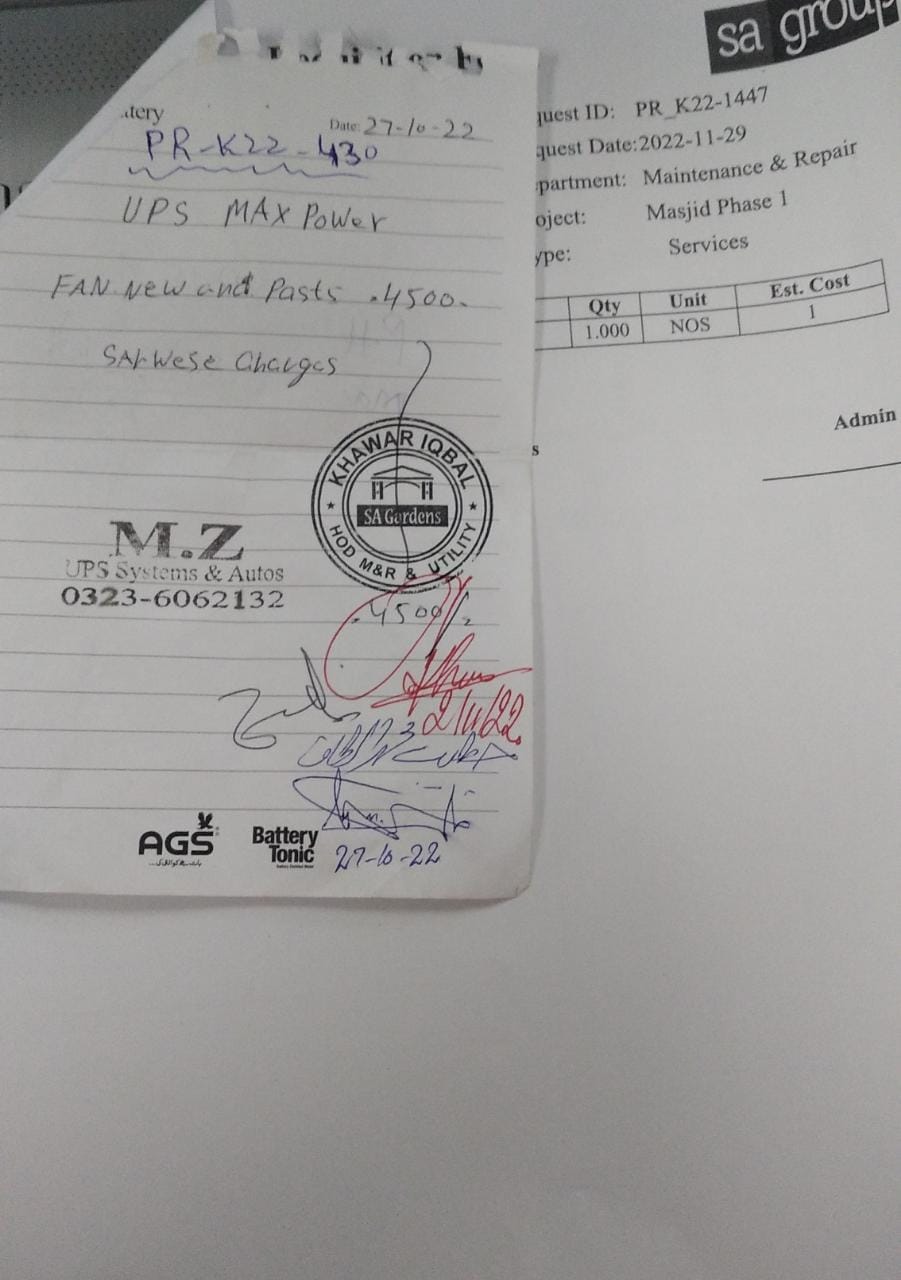 Date: 27-10-22
PR-K22-430
UPS MAX Power
FAN New and Pasts .4500.
SArWese Charges
KHAWAR IQBAL
SA Gardens
HOD M&R & UTILITY
M.Z
UPS Systems & Autos
0323-6062132
.4500/
2/11/22
27-10-22
AGS
Battery
Tonic
sa group
quest ID: PR_K22-1447
quest Date:2022-11-29
partment: Maintenance & Repair
oject: Masjid Phase 1
ype: Services
Qty Unit Est. Cost
1.000 NOS 1
Admin
s